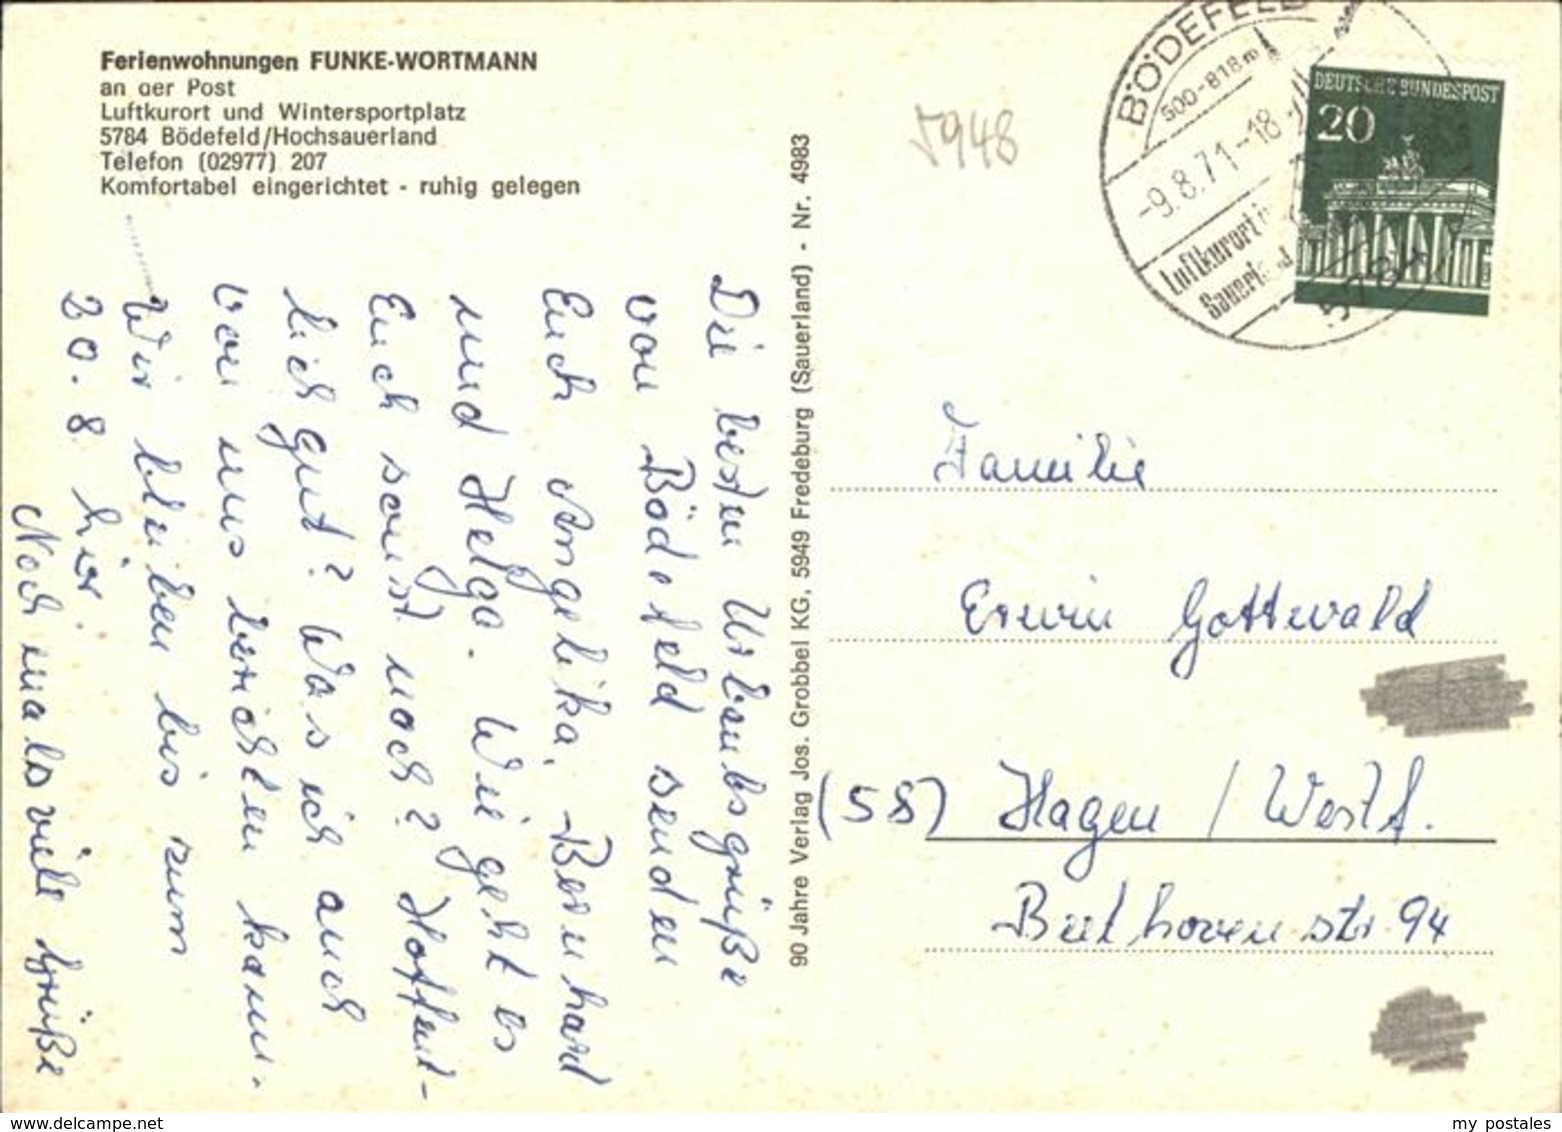 Ferienwohnungen FUNKE-WORTMANN
an der Post
Luftkurort und Wintersportplatz
5784 Bödefeld/Hochsauerland
Telefon (02977) 207
Komfortabel eingerichtet - ruhig gelegen
Die besten Urlaubsgrüße
von Bödefeld senden
Euch Angelika, Bernhard
und Helga. Wie geht es
Euch sonst noch? Hoffent-
lich gut? Was ich auch
von uns berichten kann.
Wir bleiben bis zum
20.8. hier.
Nochmals viele Grüße
90 Jahre Verlag Jos. Grobbel KG, 5949 Fredeburg (Sauerland) - Nr. 4983
5948
BÖDEFELD
500-818m
-9.8.71-18
Luftkurort i
Sauerland
5784
DEUTSCHE BUNDESPOST
20
Familie
Erwin Gottwald
(58) Hagen / Westf.
Beethovenstr. 94
www.delcampe.net
my_postales